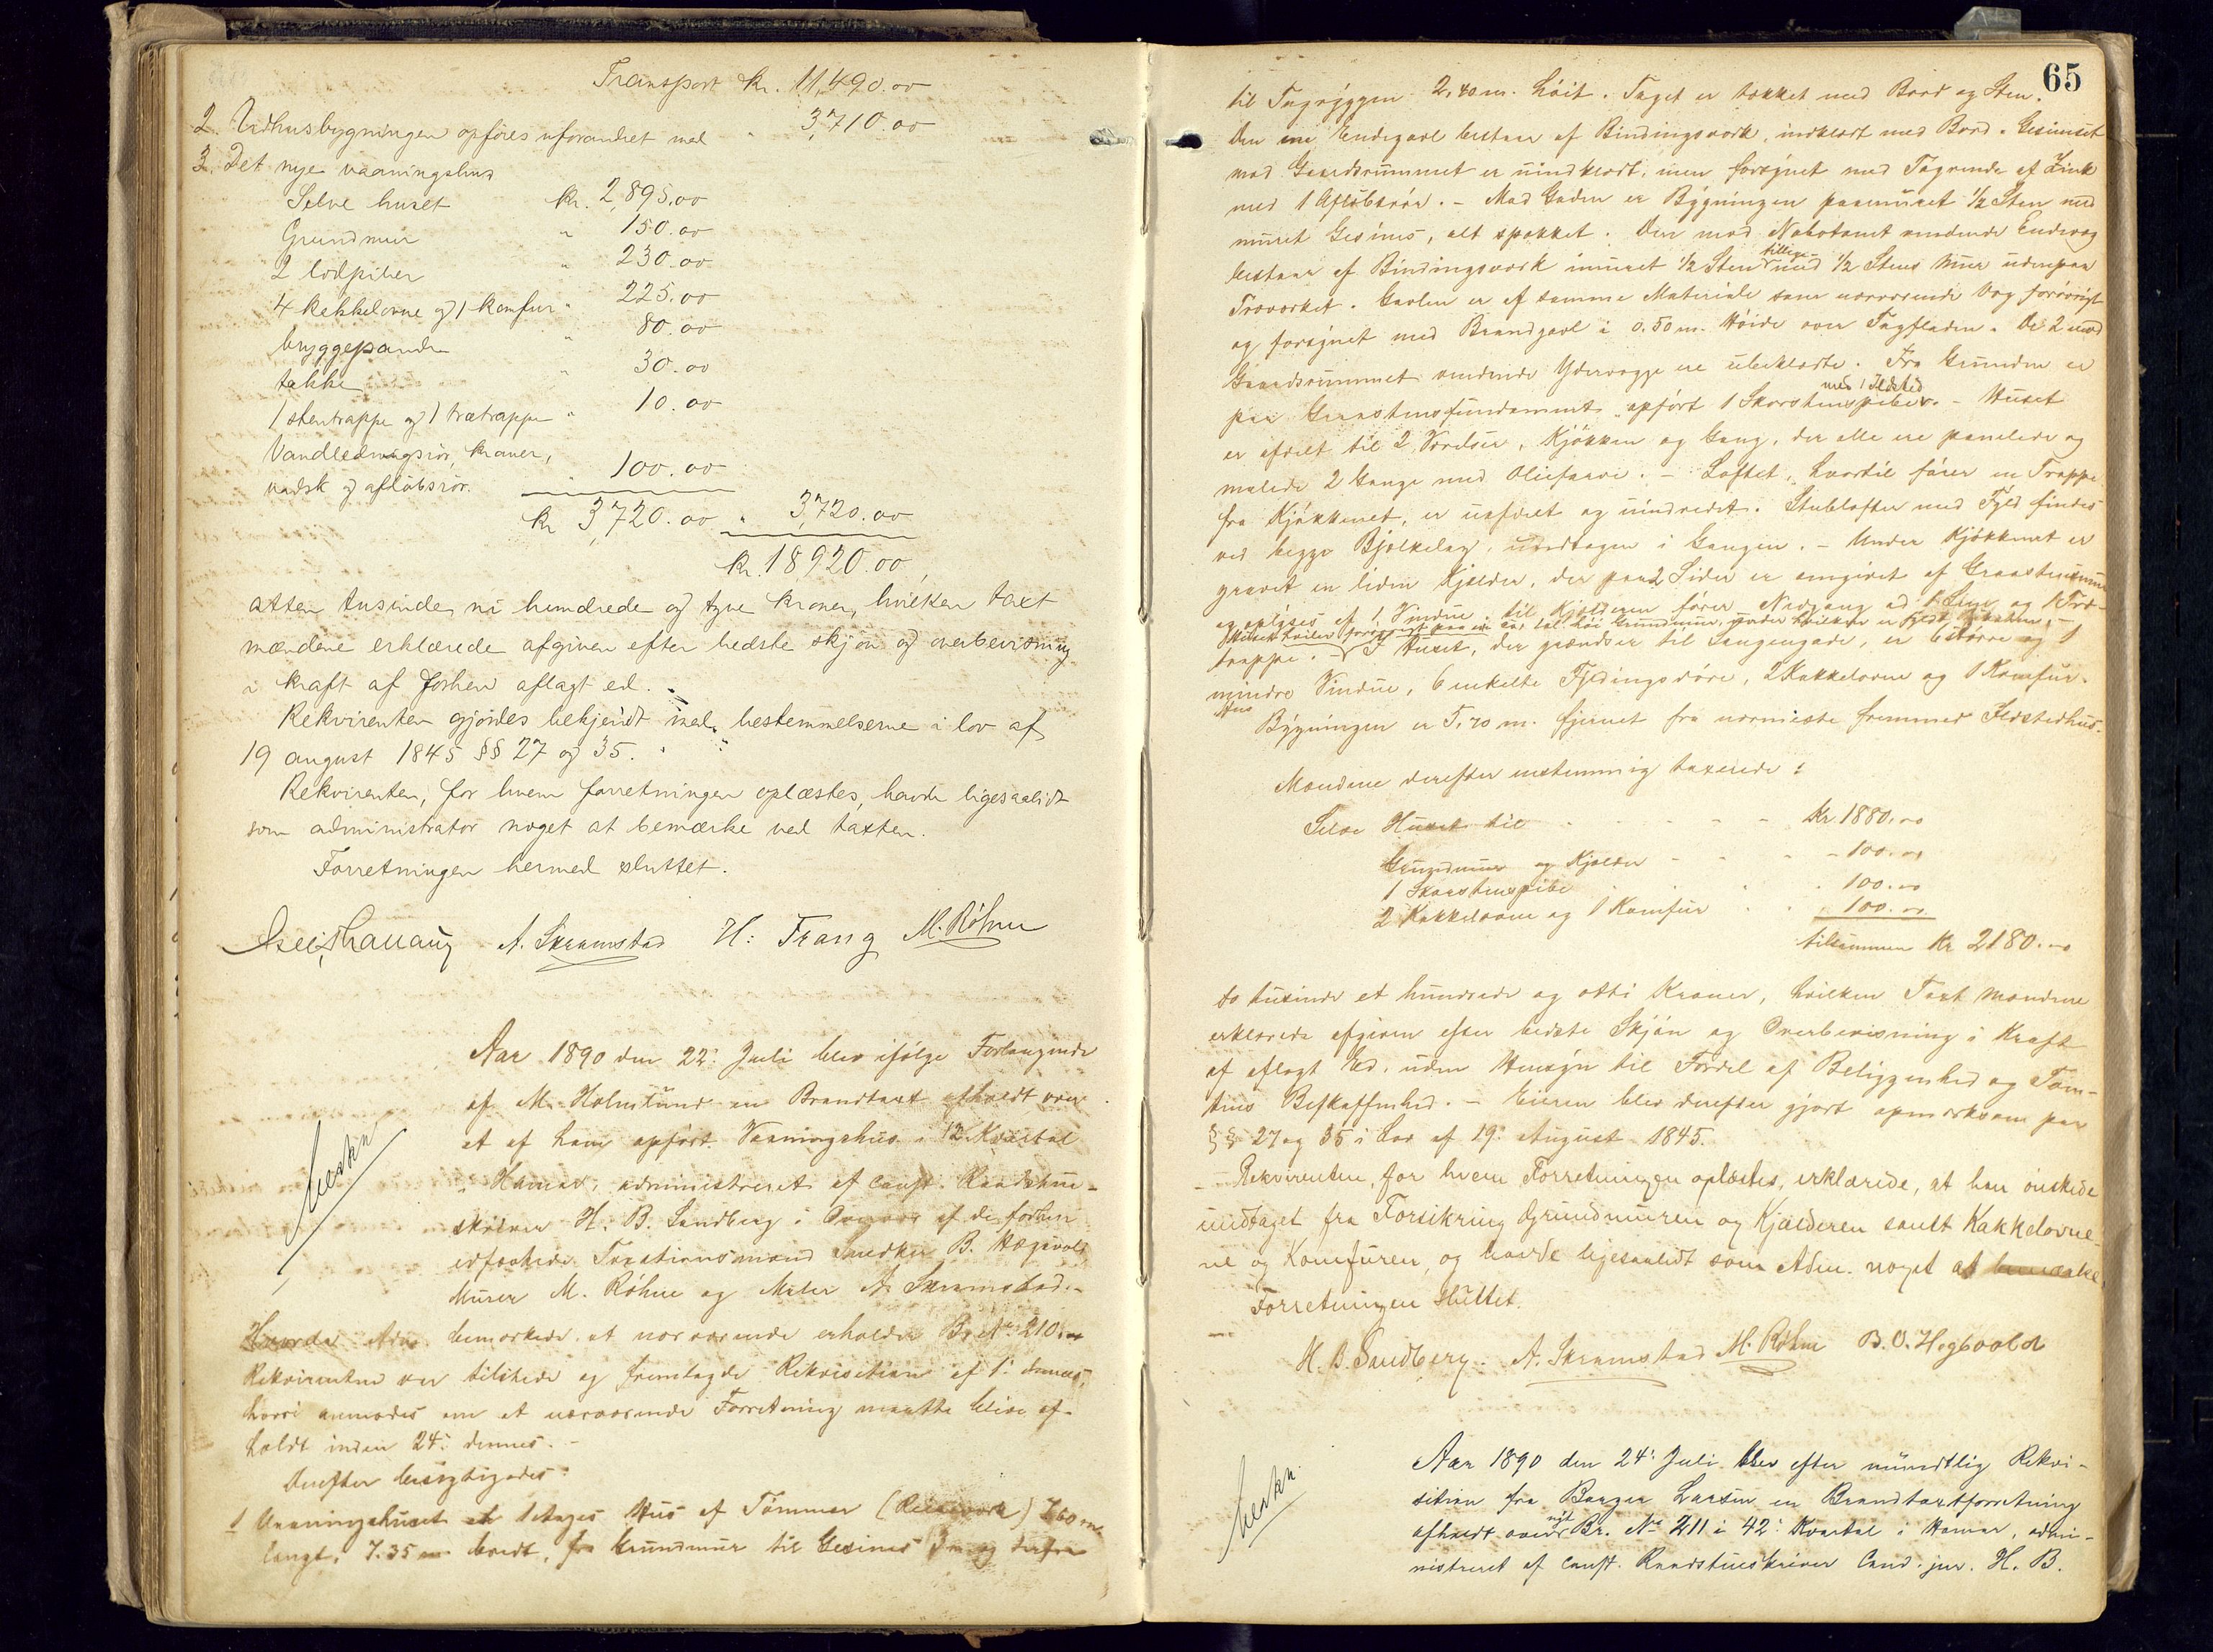 Transport kr. 11,490.00
2. Udhusbygningen opføres uforandret med " 3,710.00
3. Det nye vaaningshus
Selve huset kr. 2,895.00
Grundmur " 150.00
2 lodpiber " 230.00
4 kakkelovne og 1 komfur " 225.00
bryggepande " 80.00
takke " 30.00
1 stentrappe og 1 trætrappe " 10.00
Vandledningsrør, kraner,
vadsk og afløbsrør. " 100.00
kr 3,720.00 " 3,720.00
kr. 18920.00,
atten tusinde ni hundrede og tyve kroner, hvilken taxt
mændene erklærede afgiven efter bedste skjøn og overbevisning
i kraft af forhen aflagt ed.
Rekvirenten gjordes bekjendt med bestemmelserne i lov af
19 august 1845 §§ 27 og 35.
Rekvirenten, for hvem forretningen oplæstes, havde ligesaalidt
som administrator noget at bemærke ved taxten.
Forretningen hermed sluttet.
A. Skramstad H: Frang M. Røhne
Aar 1890 den 22: Juli blev ifølge Forlangende
af M. Holmlund en Brandtaxt afholdt over
et af ham opført Vaaningshus i 12 Kvartal
i Hamar, administreret af const. Raadstue-
skriver H. B. Sandberg i Overvær af de forhen
edfæstede Taxationsmænd Snedker B. Hegsvold
Murer M. Røhne og Maler A. Skramstad.-
beskr.
Hvorda Adm. bemærkede at nærværende erholder Br. No 210.
Rekvirenten var tilstede og fremlagde Rekvisition af 1: dennes,
hvori anmodes om at nærværende Forretning maatte blive af-
holdt inden 24: dennes. -
Derefter besigtigedes:
1 Vaaningshuset et 1 Etages Hus af Tømmer (Reisværk) 7.60 m
langt, 7.35 m bredt, fra Grundmur til Gesimes 3 m og derfra
65
til Tagryggen 2,40 m. høit. Taget er tækket med Bord og Sten.
Den ene Endegavl bestaar af Bindingsværk, indklædt med Bord. Gesimset
mod Gaardsrummet er uindklædt, men forsynet med Tagrende af Zink
med 1 Afløbsrør. - Mod Gaden er Bygningen paamuret 1/2 Sten med
muret Gesims, alt spækket. Den mod Nabotomt vendende Endevæg
bestaar af Bindingsværk imuret 1/2 Sten tillige med 1/2 Stens Mur udenpaa
Træværket. Gavlen er af samme Materiale som nærværende Væg forøvrigt
og forsynet med Brandgavl i 0.50 m. Høide over Tagfladen. De 2 mod
Gaardsrummet vendende Ydervægge ere ubeklædte. Fra Grunden er
paa Graastensfundament opført 1 Skorstenspibe med 1 Ildsted. - Huset
er afdelt til 2 Værelser, Kjøkken og Gang, der alle ere panelede og
malede 2 Gange med Oliefarve. - Loftet, hvortil fører en Trappe
fra Kjøkkenet, er uafdelt og uindredet. Stublofter med Fyld findes
ved begge Bjelkelag, undtagen i Gangen. - Under Kjøkkenet er
gravet en liden Kjelder, der paa 2 Sider er omgivet af Graastensmur
og oplyses af 1 Vindue. til Kjelderen fører Nedgang ad 1 Lem og 1 Træ-
trappe. - I Huset, der grændser til Vangengade, er 6 større og 1
mindre Vindue, 6 enkelte Fyldingsdøre, 2 Kakkelovne og 1 Komfur.
Bygningen er 5,70 m. fjernet fra nærmeste fremmed Ildstedhus.
Mændene derefter enstemmig taxerede:
Selve Huset til Kr. 1880.00
Grundmur og Kjelder - 100.00
1 Skorstenspibe 100.00
2 Kakkelovne og 1 Komfur 100.00
tilsammen Kr 2180.00
to tusinde et hundrede og otti Kroner, hvilken Taxt Mændene
erklærede afgiven efter bedste Skjøn og Overbevisning i Kraft
af aflagt Ed. uden Hensyn til Fordel af Beliggenhed og Tom-
tens Beskaffenhed. - Eieren blev derefter gjort opmærksom paa
§§ 27 og 35 i Lov af 19: August 1845.
- Rekvirenten, for hvem Forretningen oplæstes, erklærede, at han ønskede
undtaget fra Forsikring Grundmuren og Kjælderen samt Kakkelovne-
ne og Komfuren, og havde ligesaalidt som Adm. noget at bemærke.
Forretningen sluttet.
H. B. Sandberg. A. Skramstad M. Røhne B. O. Hegsvold
Aar 1890 den 24: Juli blev efter mundtlig Rekvi-
sition fra Borger Larsen en Brandtaxtforretning
afholdt over nyt Br. No 211 i 42: Kvartal i Hamar, admi-
nistreret af const. Raadstueskriver Cand. jur. H. B.
beskr.